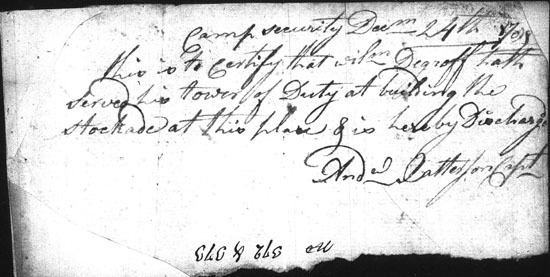 Camp security Decm 24th
this is to Certify that wilm Degroff hath
served his tower of Duty at building the
stockade at this place & is hereby Discharge
And.d Patterson Capt
372 & 373